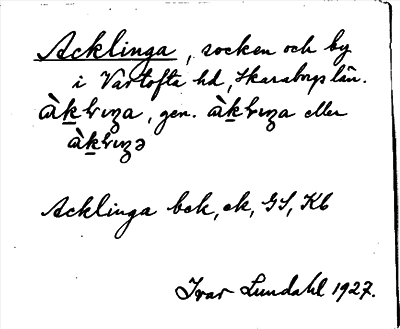 Acklinga, socken och by
i Vartofta hd, Skaraborgs län.
àk̲lıŋa, gen. àk̲lıŋa eller
àk̲lıŋə
Acklinga bek, ek, GS, Kb
Ivar Lundahl 1927.